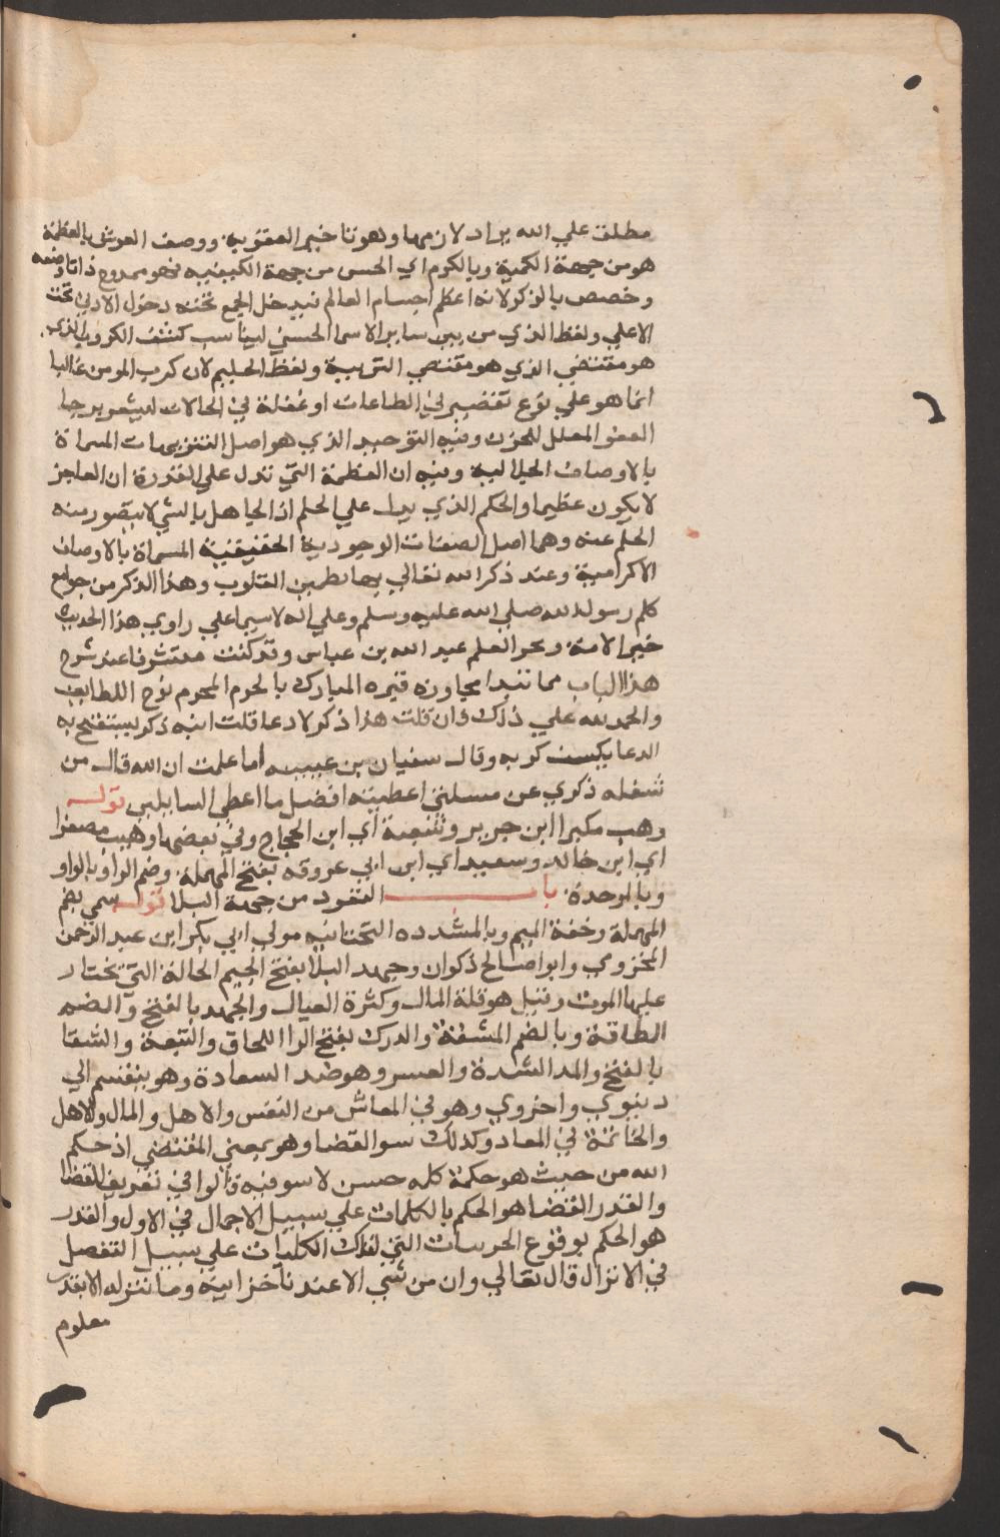 مطلق علي الله يراد لازمها وهو تاخير العقوبة ووصف العرش بالعظمة
هو من جهة الكمية وبالكرم اي الحسن من جهة الكيفيه فهو ممدوح ذاتا وصفه
وخصص بالذكر لانه اعظم اجسام العالم فيدخل الجمع تحته دخول الادني تحت
الاعلي ولفظ الذي من بين ساير الاسما الحسني ليناسب كشف الكروب الذي
هو مقتضي الذي هو مقتضي التربية ولفظ الحليم لان كرب المومن غالبا
انما هو علي نوع تقصير في الطاعات او غفلة في الحالات ليشعر برجا
العفو المقلل للحزن وفيه التوحيد الذي هو اصل التنزيهات المسماة
بالاوصاف الجلالية وفيه ان العظمة التي تدل علي القدرة ان العاجز
لا يكون عظيما والحكم الذي يدل علي الحلم اذ الجاهل بالشي لا يتصور منه
الحلم عنه وهما اصل الصفات الوجودية الحقيقية المسماة بالاوصاف
الاكرامية وعند ذكر الله تعالي بها يطمين القلوب وهذا الذكر من جوامع
كلم رسول الله صلي الله عليه وسلم وعلي اله لاسيما علي راوي هذا الحديث
خير الامة وبحر العلم عبد الله بن عباس وقد كنت متشرفا عند شرح
هذا الباب مما نبدا مجاورة قبره المبارك بالحرم المحوم بوج الطايف
والحمد لله علي ذلك فان قلت هذا ذكر لا دعا قلت انه ذكر يستفتح به
الدعا يكشف كربه وقال سفيان بن عيينه أما علمت ان الله قال من
شغله ذكري عن مسلتي اعطيته افضل ما اعطي السايلين قوله
وهب مكبرا ابن جرير وشعبة اي ابن الحجاج وفي بعضها وهيب مصغرا
اي ابن خالد وسعيد اي ابن ابي عروقه بفتح المهملة وضم الرا وبالواو
وبالموحدة باب التعود من جهة البلا قوله سمي بضم
المهملة وخفة الميم وبالمشدده التحتانيه مولي ابي بكر ابن عبد الرحمن
المخزومي وابو اصالح ذكوان وجهد البلا بفتح الجيم الحالة التي يختار
عليها الموت وقيل هو قلة المال وكثرة العيال والجهد بالفتح والضم
الطاقة وبالضم المشقة والدرك بفتح الرا اللحاق والتبعة والشقا
بالفتح والمد الشدة والعسر وهو ضد السعادة وهو ينقسم الي
دنيوي واخروي وهو في المعاش من النفس والاهل والمال والاهل
والخاتمة في المعاد وكذلك سو القضا وهو بمعني المقتضي اذ حكم
الله من حيث هو حكمة كله حسن لا سو فيه قالوا في تعريف القضا
والقدر القضا هو الحكم بالكلمات علي سبيل الاجمال في الاول والقدر
هو الحكم بوقوع الجريات التي لتلك الكليات علي سبيل التفصل
في الانزال قال تعالي وان من شي الا عندنا خزاينه وما ننزله الا بقدر
معلوم